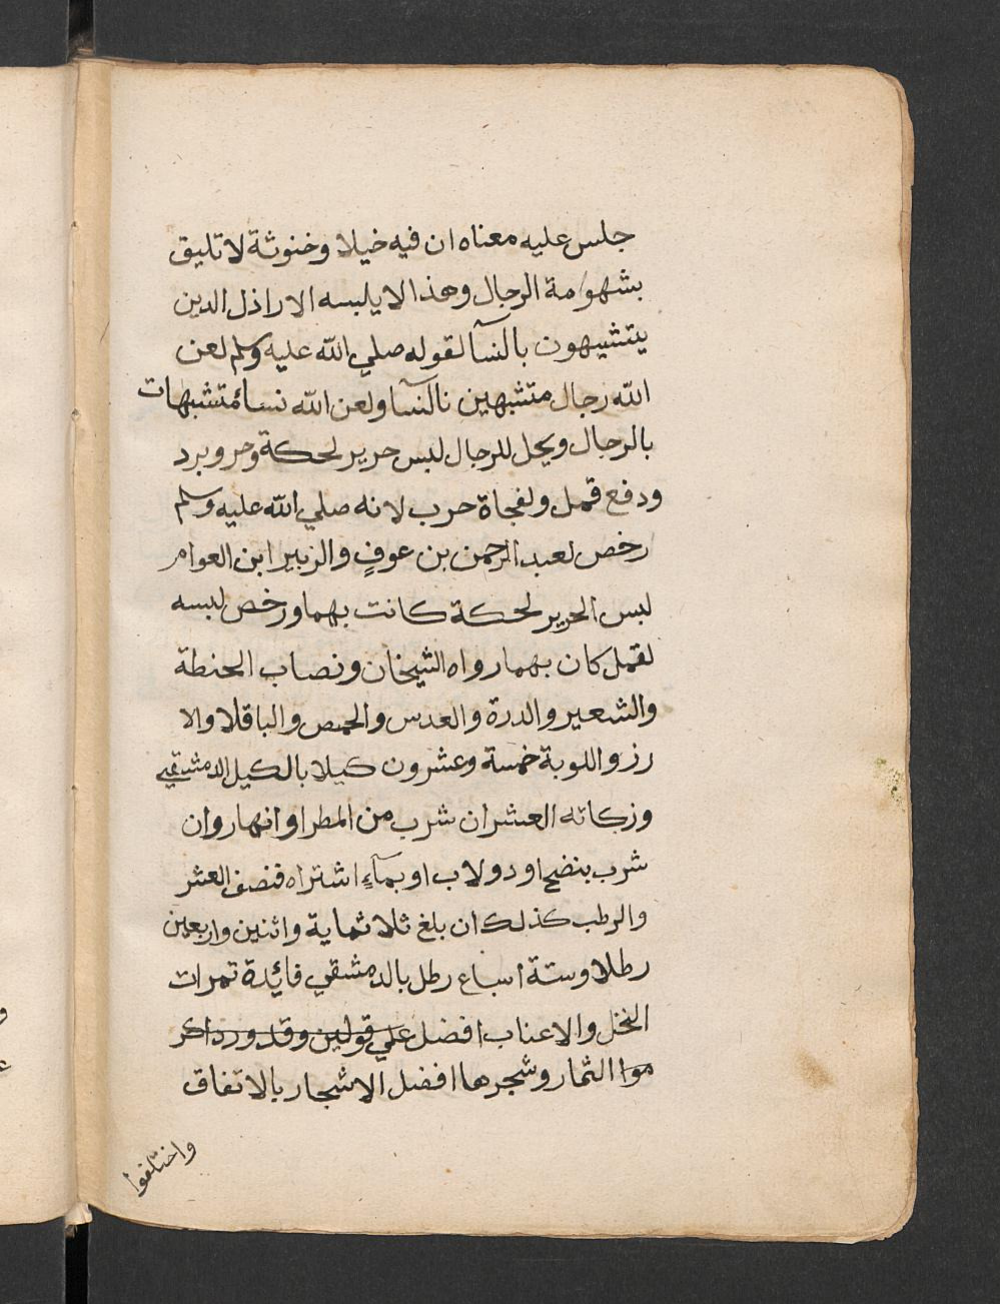 جلس عليه معناه ان فيه خيلا وخنوثة لا تليق
بشهوامة الرجال وهذا الا يلبسه الاراذل الدين
يتشبهون بالنسآ لقوله صلي الله عليه وسلم لعن
الله رجال متشبهين نالنسآ ولعن الله نسائمتشبهات
بالرجال ويحل للرجال للبس حرير لحكة وحر وبرد
ودفع قمل ولفجاة حرب لانه صلي الله عليه وسلم
رخص لعبد الرحمن بن عوفٍ والزبير ابن العوام
لبس الحرير لحكة كانت بهما ورخص لبسه
لقمل كان بهما رواه الشيخان ونصاب الحنطة
والشعير والدرة والعدس والحمص والباقلا والا
رز واللوبة خمسة وعشرون كيلا بالكيل الدمشيقي
وزكاته العشر ان شرب من المطر او انهار وان
شرب بنضح او دولاب او بمآءٍ اشتراه فنصف العشر
والرطب كذلك ان بلغ ثلاثماية واثنين واربعين
رطلا وستة اسباع رطل بالدمشقي فائدة تمرات
النخل والاعناب افضل علي قولين وقد ورد اكر
موا الثمار وشجرها افضل الاشجار بالاتفاق
واختلفوا